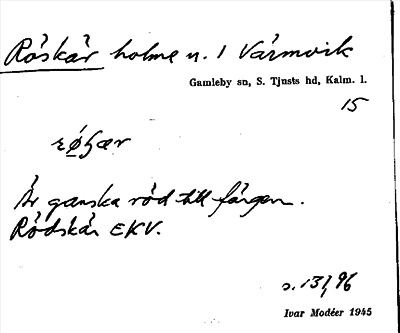 Röskär holme n. I Värmvik
Gamleby sn, S. Tjusts hd, Kalm. l.
15
Är ganska röd till färgen.
Rödskär EKV.
s. 131, 96
Ivar Modéer 1945